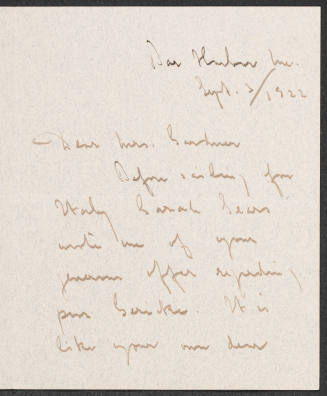 Bar Harbor Me.
Sept. 3/1922
Dear Mrs. Gardner
Before sailing for
Italy Sarah Sears
wrote me of your
generous offer regarding
poor Gericke. It is
like your own dear